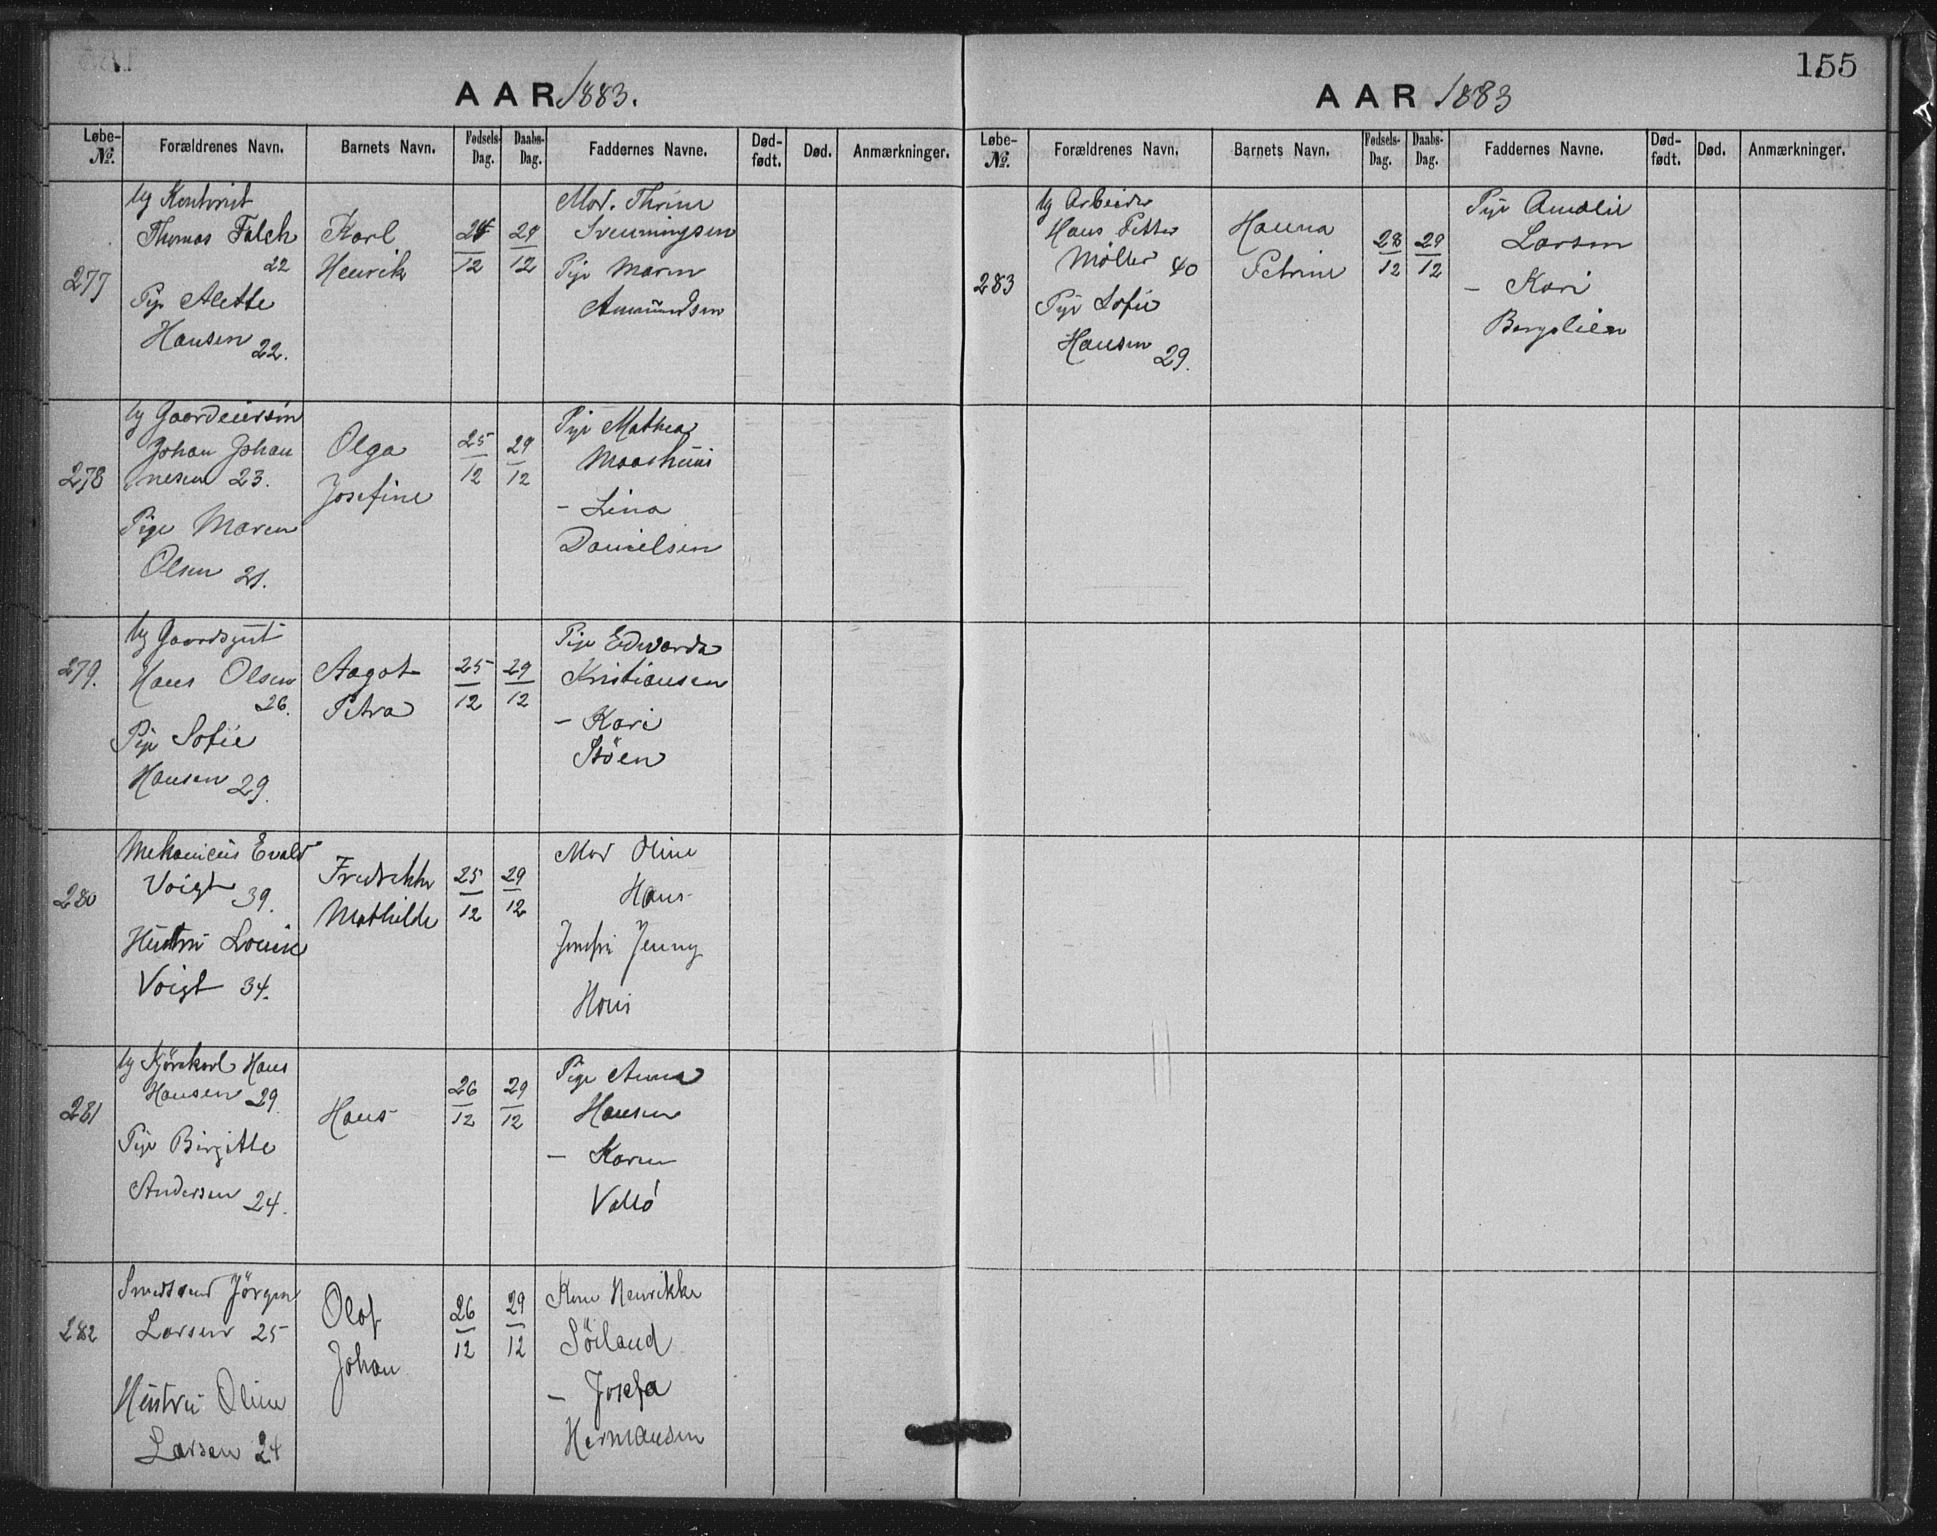 155
AAR 1883.
Løbe-No.
Forældrenes Navn.
Barnets Navn.
Fødsels-Dag.
Daabs-Dag.
Faddernes Navne.
Død-født.
Død.
Anmærkninger.
277
Ug Kontorist
Thomas Falch
22
Pige Alette
Hansen 22.
Karl
Henrik
29/12
Mad. Thrine
Svenningsen
Pige Maren
Amundsen
278
Ug Gaardeiersøn
Johan Johan
nesen 23.
Pige Maren
Olsen 21.
Olga
Josefine
25/12
29/12
Pige Mathea
- Lina
Danielsen
279.
Ug Gaardsgut
Hans Olsen
26.
Pige Sofie
Hansen 29.
Aagot
Petra
25/12
29/12
Pige Edvarda
Kristiansen
- Kari
Støen
280
Mekanicus Evald
Voigt 39.
Hustru Louise
Voigt 34.
Fredrikke
Mathilde
25/12
29/12
Mad Oline
Hans
Jomfru Jenny
281
Ug Kjørekarl Hans
Hansen 29.
Pige Birgitte
Andersen 24.
Hans
26/12
29/12
Pige Anna
Hansen
- Karen
Vallø
282
Smedsvend Jörgen
Larsen 25
Hustru Oline
Larsen 24
Olaf
Johan
26/12
29/12
Kone Henrikke
Söiland
- Josefa
Hermansen
AAR 1883
Løbe-No.
Forældrenes Navn.
Barnets Navn.
Fødsels-Dag.
Daabs-Dag.
Faddernes Navne.
Død-født.
Død.
Anmærkninger.
283
Ug Arbeider
Hans Petter
Møller 40
Pige Sofie
Hansen 29.
Hanna
Petrine
28/12
29/12
Pige Amalie
Larsen
- Kari
Bergslien